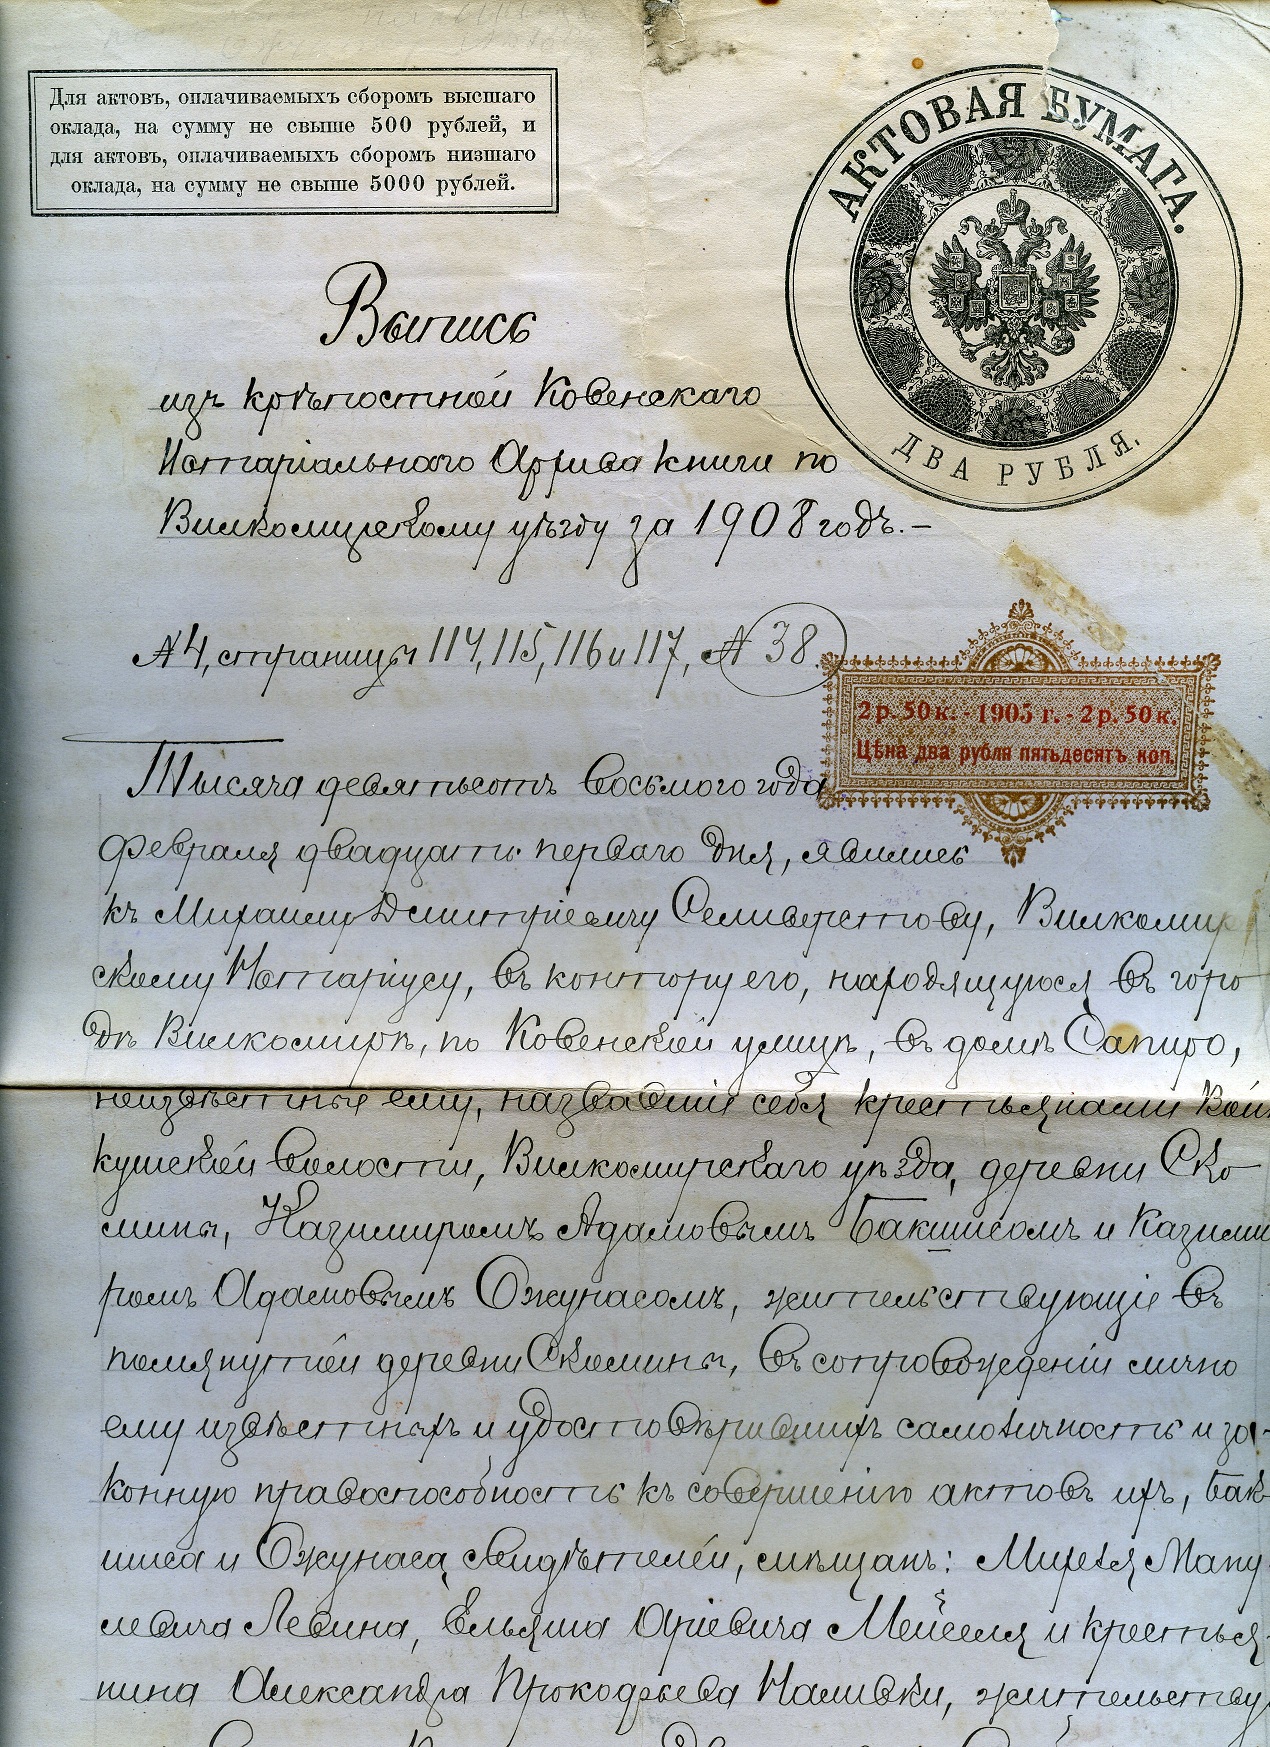 Для актовъ, оплачиваемыхъ сборомъ высшаго
оклада, на сумму не свыше 500 рублей, и
для актовъ, оплачиваемыхъ сборомъ низшаго
оклада, на сумму не свыше 5000 рублей.
АКТОВАЯ БУМАГА.
ДВА РУБЛЯ.
Выпись
изъ крѣпостной Ковенскаго
Нотаріальнаго Архива книги по
Вилкомирскому уѣзду за 1908 годъ.-
№ 4, страницы 114, 115, 116 и 117, № 38.
2 р. 50 к. - 1905 г. - 2 р. 50 к.
Цѣна два рубля пятьдесятъ коп.
Тысяча девятьсотъ восьмого года
февраля двадцать перваго дня, явились
къ Михаилу Дмитріевичу Селиверстову, Вилкомир
скому Нотаріусу, въ контору его, находящуюся въ горо
дѣ Вилкомирѣ, по Ковенской улицѣ, въ домѣ Сапиро,
неизвѣстные ему, назвавшіе себя крестьянами Вой
кушской волости, Вилкомирскаго уѣзда, деревни Ско
мины, Казимиромъ Адамовымъ Бакшисомъ и Казими
ромъ Адамовымъ Ожунасомъ, жительствующіе въ
помянутой деревни Скомины, въ сопровожденіи лично
ему извѣстныхъ и удостовѣрившихъ самоличность и за-
конную правоспособность къ совершенію актовъ ихъ, Бак
шиса и Ожунаса, свидѣтелей, мѣщанъ:
левича Левина, Ельяша Аріевича Мейселя и крестья-
нина Александра Прокофьева Наливки, жительству